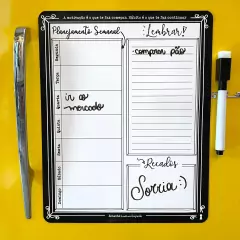 A motivação é o que te faz começar. Hábito é o que te faz continuar!
Planejamento Semanal
Lembrar!
Segunda
Terça
Quarta
Quinta
Sexta
Sábado
Domingo
ir ao
mercado
comprar pão
Recados
Sorria :)